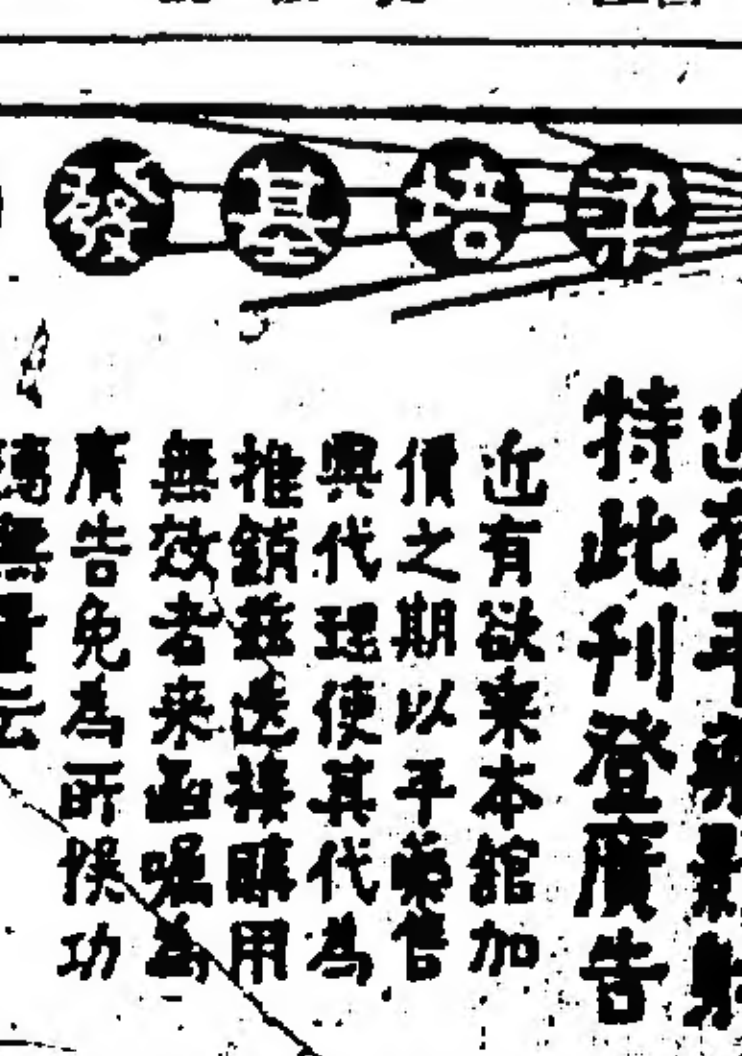 梁培基發
近有平藥影射
特此刊登廣告
近有欲棄本館加
價之期以平藥售
與代理使其代為
推銷茲迭接購用
無效者來函囑為
廣告免為所悞功
無量云